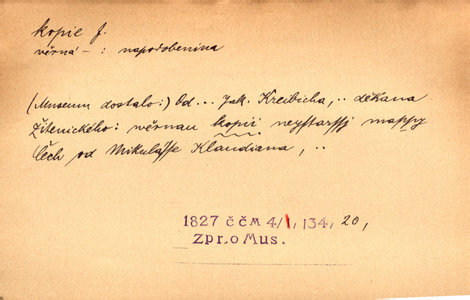 kopie f.
věrná – : napodobenina
(Museum dostalo:) bd... Jak. Kreibicha, .. děkana
Žitenického: věrnau kopií neystaršj mappy
Čech od Mikuláše Klaudiana, ..
1827 ČČM 4/1, 134, 20,
Zpr. o Mus.